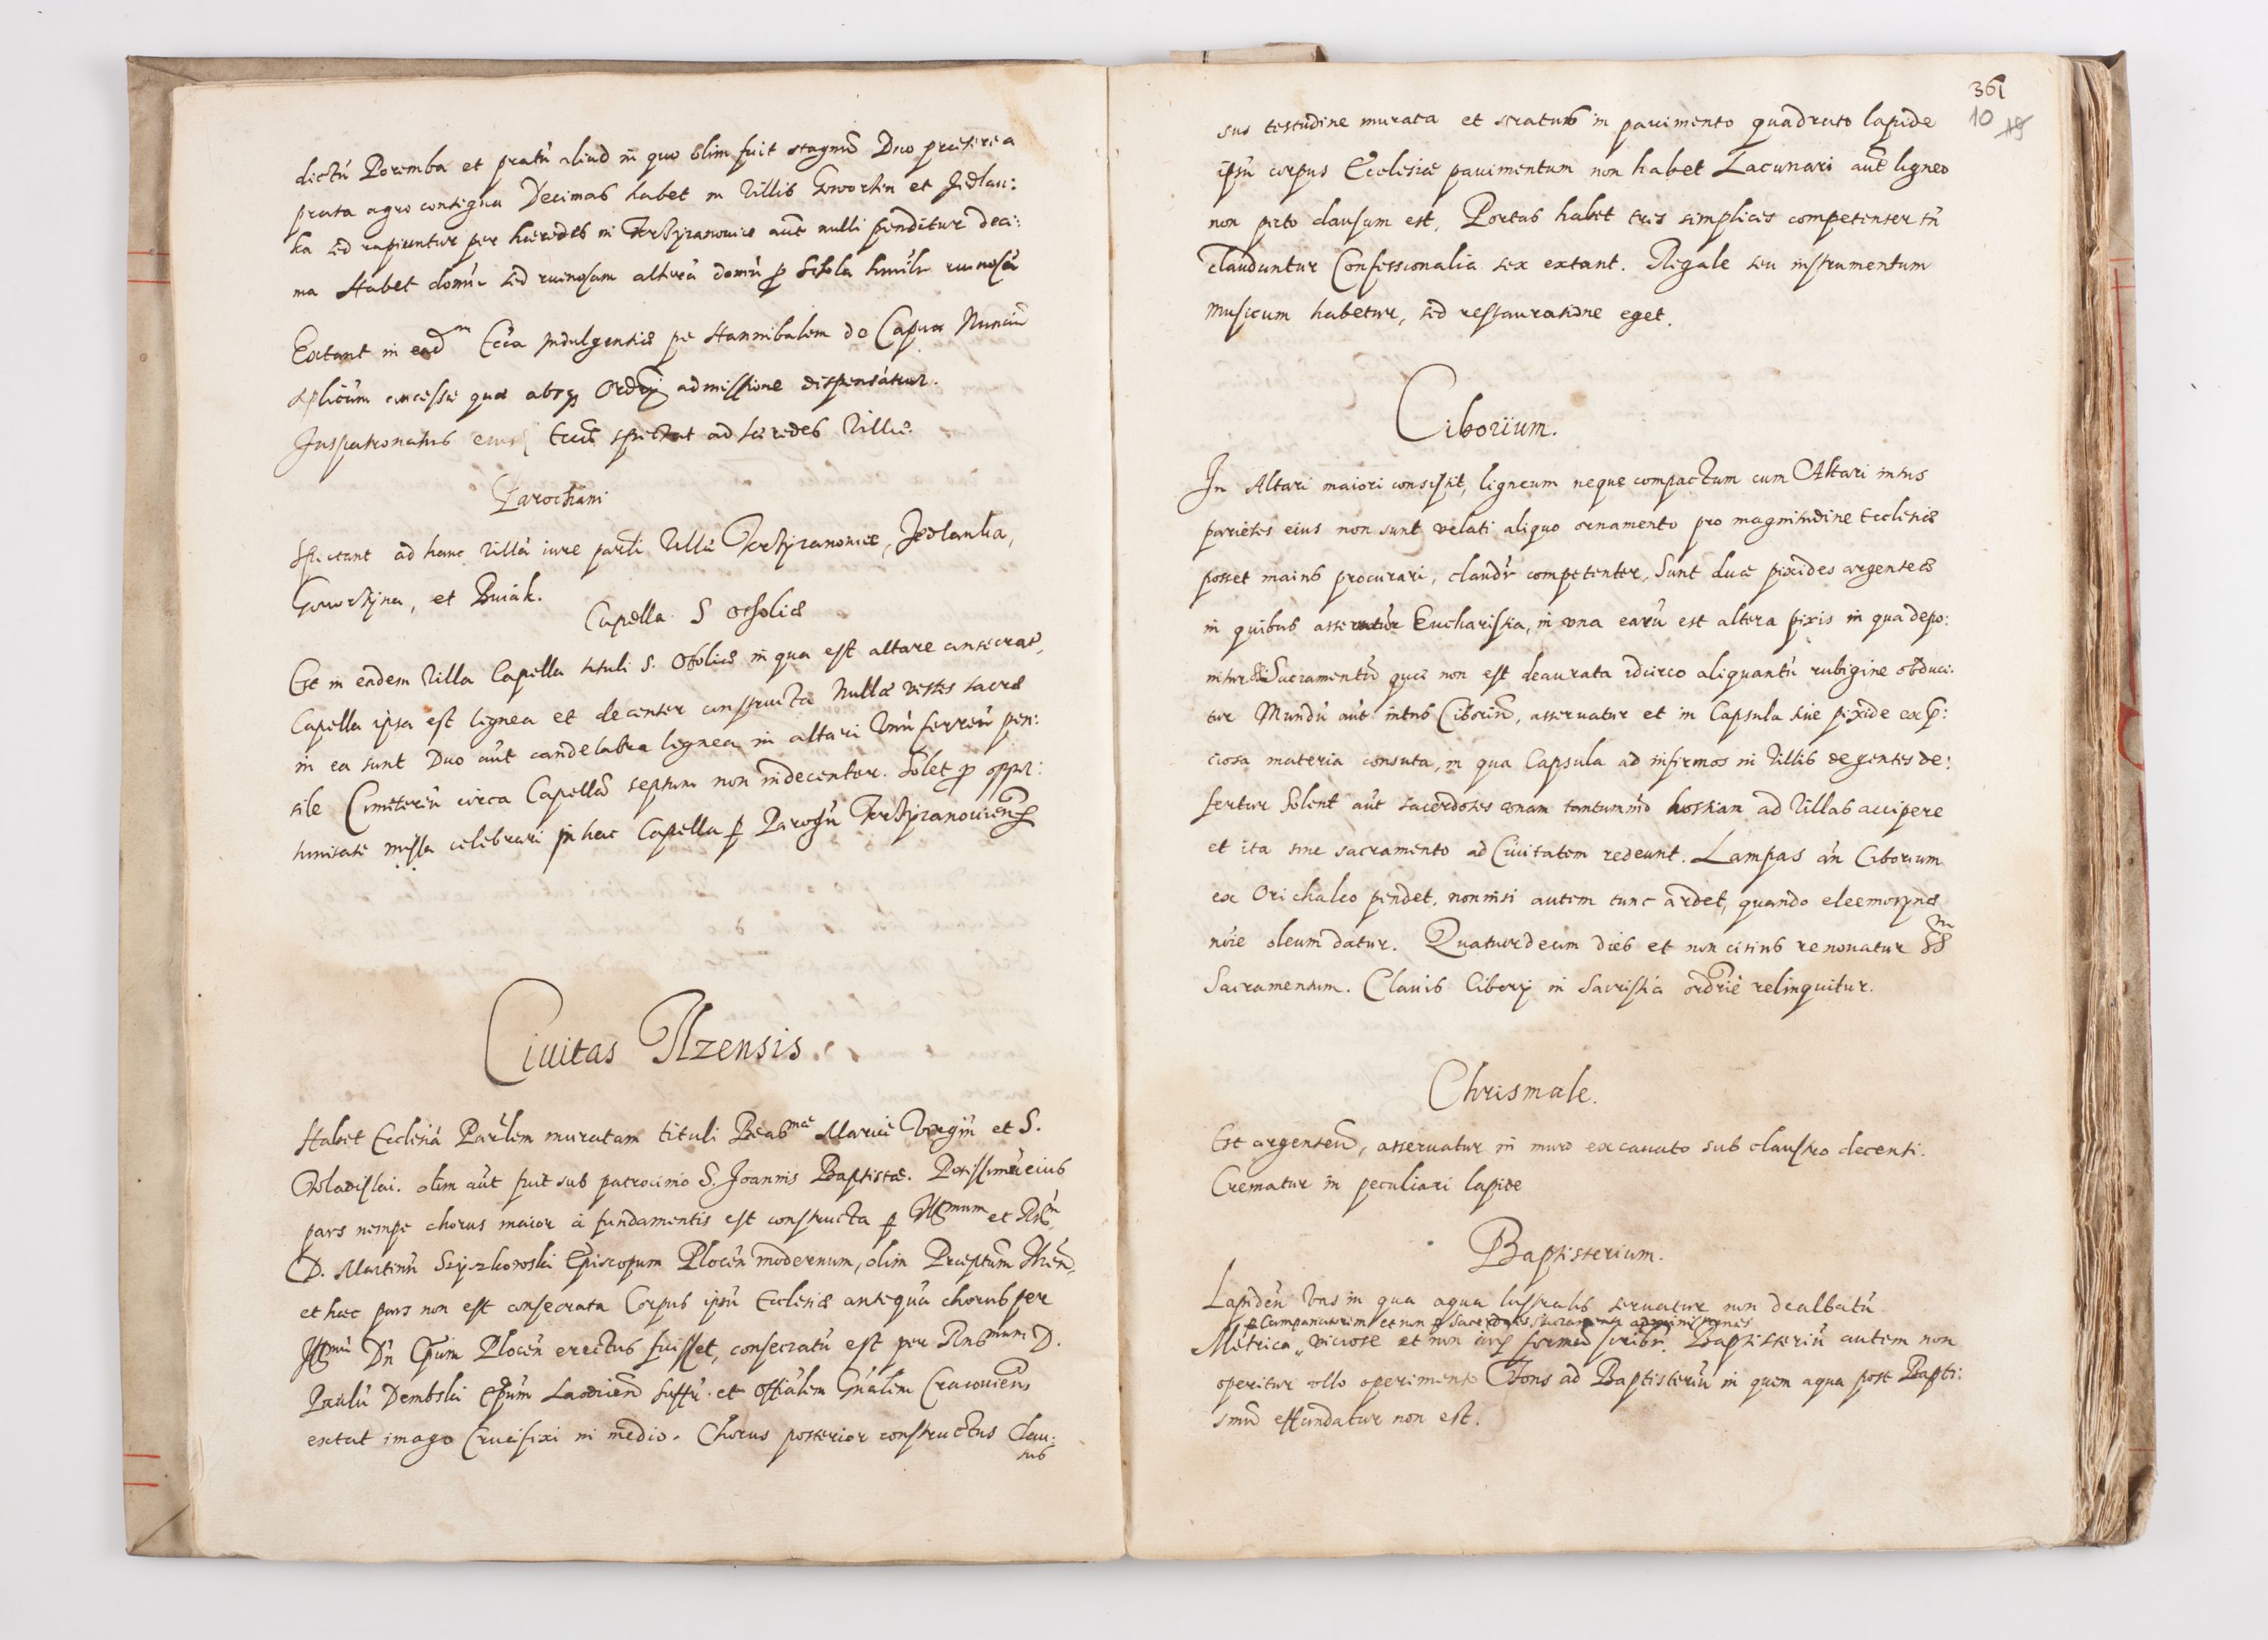 dictú Poremba et pratú aliud in quo olim fuit stagnũ Duo præterea
prata agro contigua Decimas habet in Villis et Jedlan:
ka sed rapiuntur per hæredes in aut nulli penditur deci:
ma Habet domú sed ruinosam alterá domú p Schola ruinosá
Extant in eadm Ecc̃a Indulgentiæ Hannibalem de Capua Nunciũ
Aplicum concessæ quæ absq Ordrij admissione dispensátur.
Juspatronatus eius Eccæ spectat ad hæredes Villæ.
Parochiani
Spectant ad hanc Villá iure Villæ Jedlanka,
et Buiak.
Capella S Otholiæ
Est in eadem Villa Capella tituli S. Otoliæ in qua est altare consecrat,
Capella ipsa est lignea et decenter constructa Nullæ vestes sacræ
in ea sunt Duo aút candelabra lignea in altari Vnú ferreú pen:
sile Cimiteriú circa Capellã septum non indecenter. Solet p oppor:
tunitate missa celebrari in hac Capella p Parochú
Ciuitas Ilzensis.
Habet Ecclesiá Parlem muratam tituli Beatmæ Mariæ Virgin et S.
Wladislai. olim aút fuit sub patrocinio S. Joannis Baptistæ. Potissimá eius
pars nempe chorus maior á fundamentis est constructa p Illmum et Rm
D. Martinú Szyszkowski Episcopum Plocen modernum, olim
et hæc pars non est consecrata Corpus ipsú Ecclesiæ antequá chorus per
Illmú Dn Epum Plocen erectus fuisset, consecratú est per Rndmum D.
Paulú Dembski Epúm Laodicen Suffú. et Offialem Gnalem Cracouiens
extat imago Crucifixi in medio. Chorus posterior constructus Clau:
sus
361
10
sus testudine murata et stratus in pauimento quadrato lapide
ipsú corpus Ecclesiæ pauimentum non habet Lacunari aút ligneo
non picto clausum est, Portas habet tres simplices competenter tñ
clauduntur Confessionalia sex extant. Regale seu instrumentum
musicum habetur, sed restauratione eget.
Ciborium.
In Altari maiori consistit, ligneum neque compactum cum Altari intus
parietes eius non sunt velati aliquo ornamento pro magnitudine Ecclesiæ
posset maius procurari, claudr competenter, Sunt duæ pixides argenteæ
in quibus asseruatúr Eucharistia, in vna earú est altera pixis in qua depo:
nitur SS Sacramentũ quæ non est deaurata idcirco aliquantú rubigine obduci:
tur Mundú aút intus Ciboriũ, asseruatur et in Capsula siue pixide ex p:
ciosa materia consuta, in qua Capsula ad infirmos in Villis degentes de:
fertur Solent aút sacerdotes vnam tantummõ hostiam ad Villas accipere
et ita sine sacramento ad Ciuitatem redeunt. Lampas án Ciborium
ex Orichalco pendet, nonnisi autem tunc ardet, quando eleemosynæ
nõie oleum datur. Quatuordecim dieb et non citius renouatur SSm
Sacramentum. Clauis Ciborij in Sacristia ordrie relinquitur.
Chrismale.
Est argenteũ, asseruatur in muro excauato sub claustro decenti.
Crematur in peculiari lapide
Baptisterium.
Lapideú Vas in qua aqua lustralis seruatur non dealbatú
p Campanatorem et non p Sacerdotes sacramenta administrantes
Metrica viciose et non iuxta formã scribr. Baptisteriú autem non
operitur vllo operimento Fons ad Baptisteriú in quem aqua post Bapti:
smũ effundatur non est.